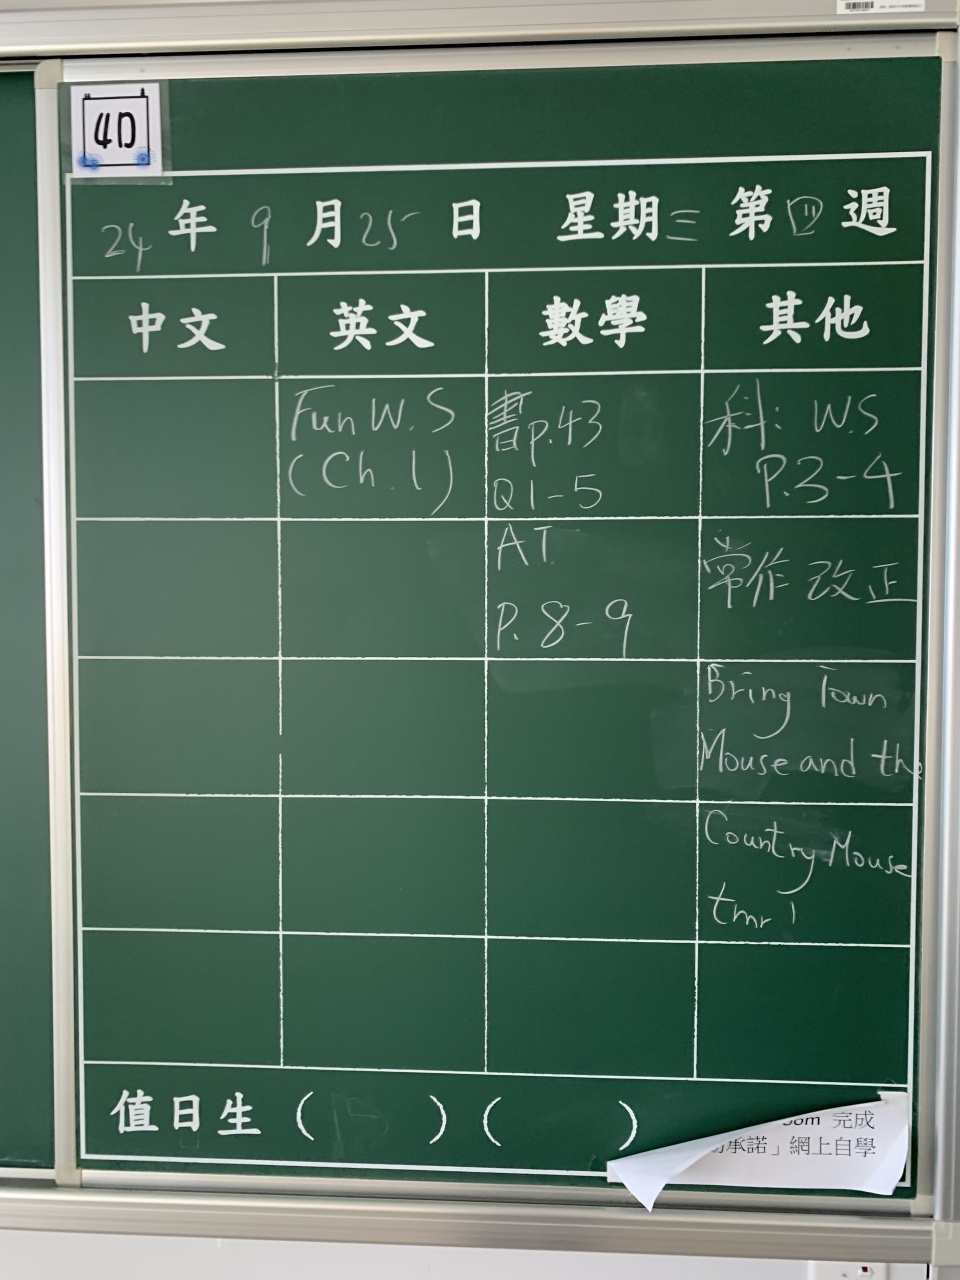 4D
24年9月25日 星期三 第四週
中文 英文 數學 其他
Fun W.S
(Ch.1)
書p.43
Q1-5
科: W.S
P.3-4
AT
P.8-9
常作改正
Bring Town
Mouse and the
Country Mouse
tmr!
值日生 ( 15 ) ( )
om 完成
承諾」網上自學